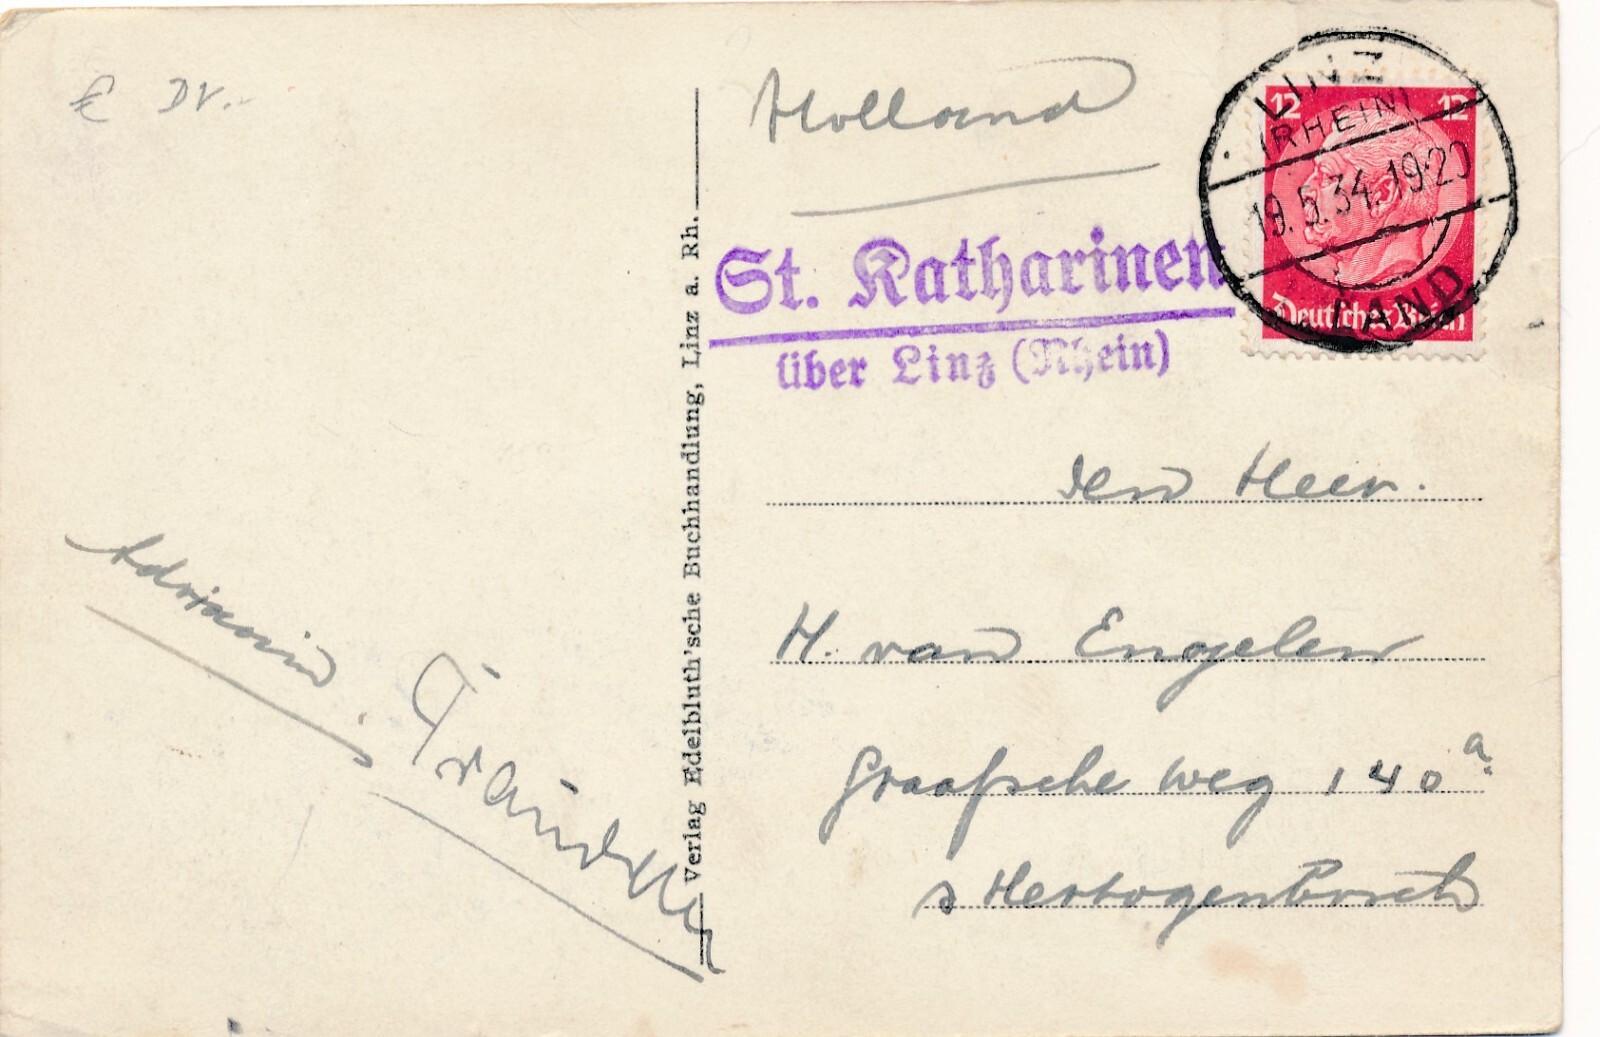 Holland
LINZ
(RHEIN)
19.5.34.19-20
LAND
12 12
Deutsches Reich
St. Katharinen
über Linz (Rhein)
Verlag Edelbluth'sche Buchhandlung, Linz a. Rh.
den Heer.
H. van Engelen
Graafsche weg 140a.
s Hertogenbosch